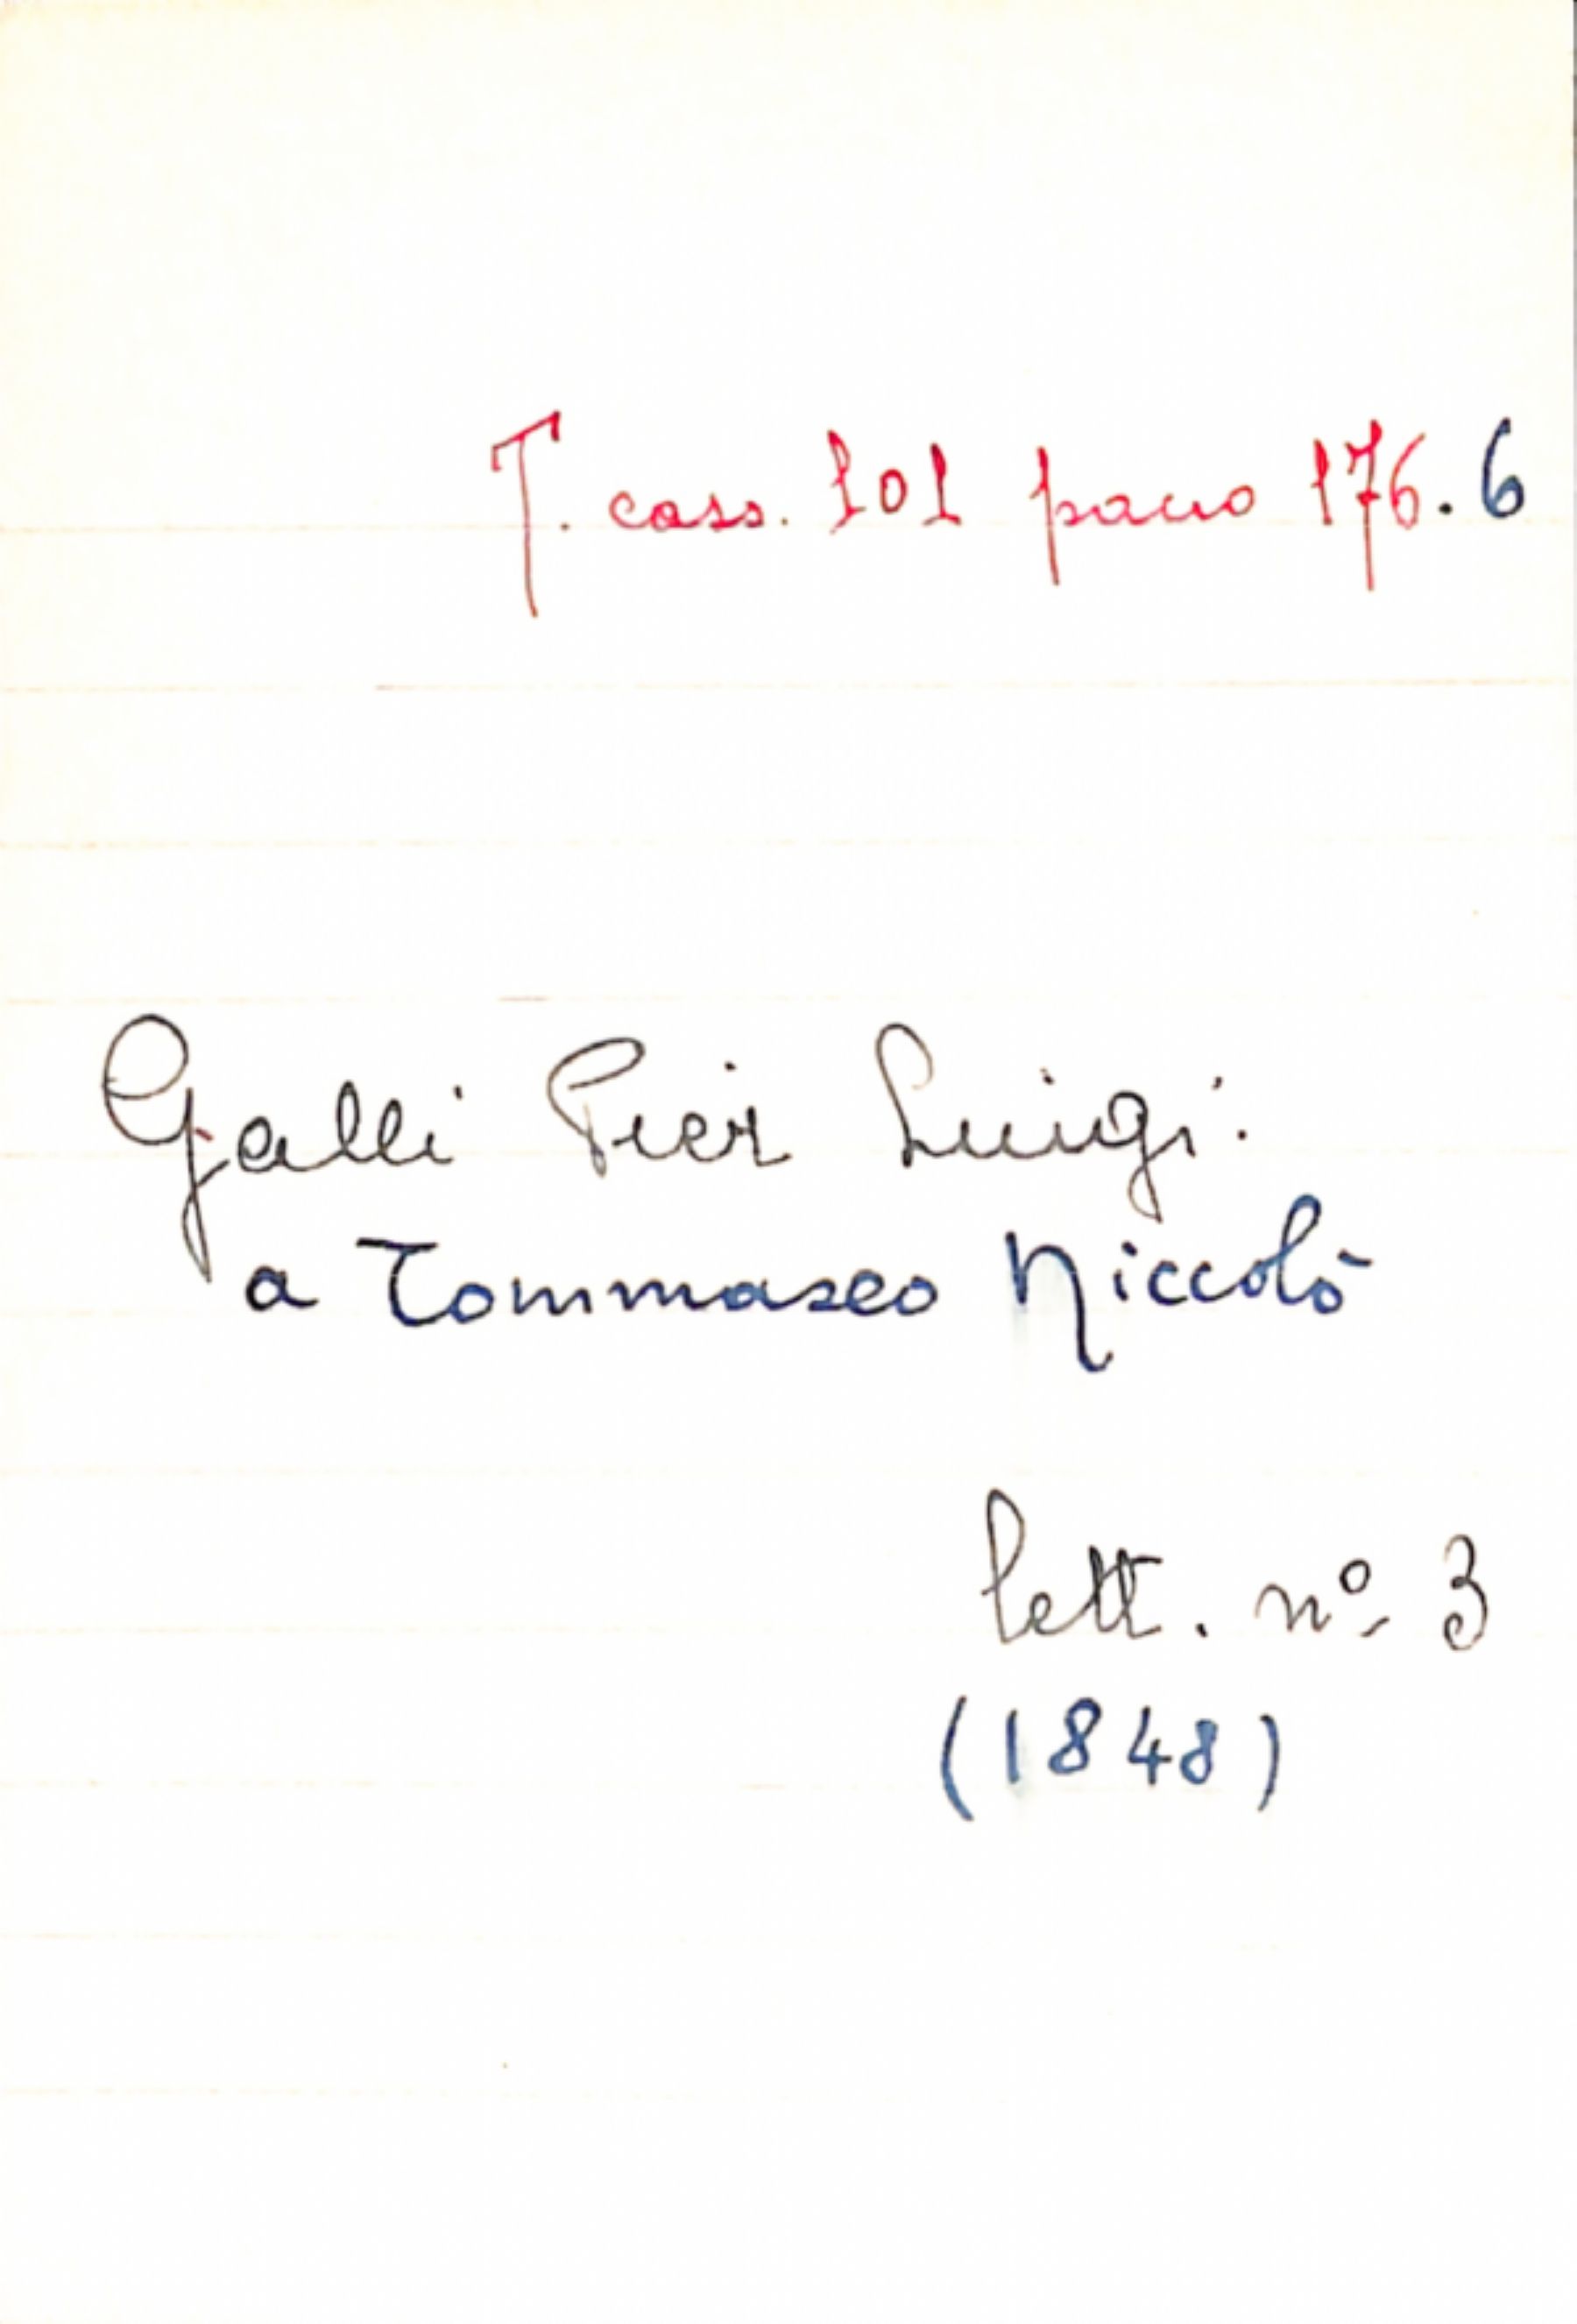 T. cass. 101 pacco 176.6
Galli Pier Luigi.
a Tommaseo Niccolò
lett. nº 3
(1848)